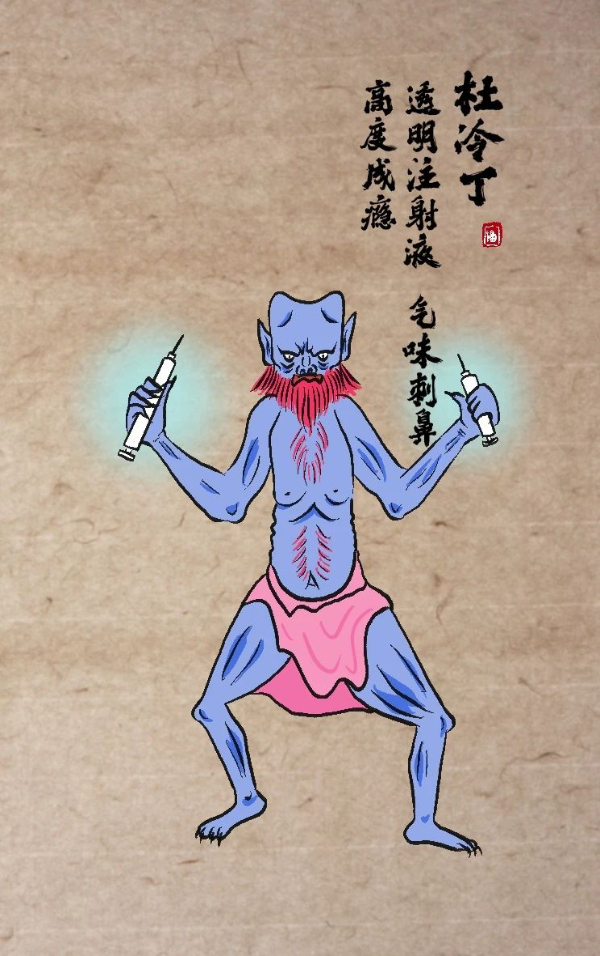 杜冷丁
透明注射液 气味刺鼻
高度成瘾